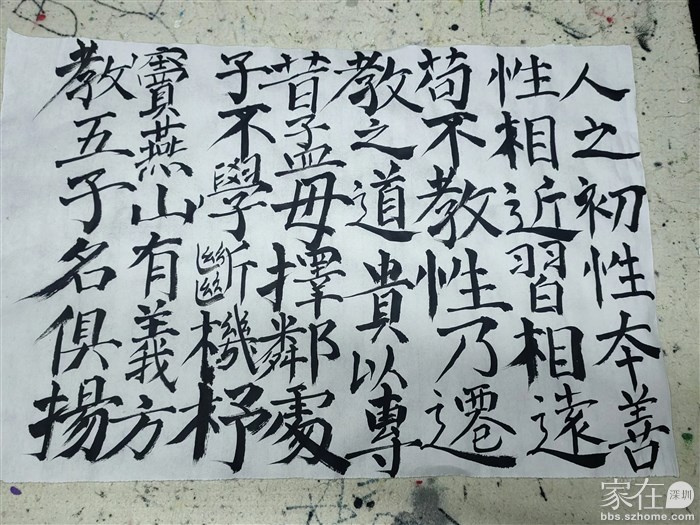 人之初性本善
性相近習相遠
苟不教性乃遷
教之道貴以專
昔孟母擇鄰處
子不學斷機杼
竇燕山有義方
教五子名俱揚
家在深圳
bbs.szhome.com